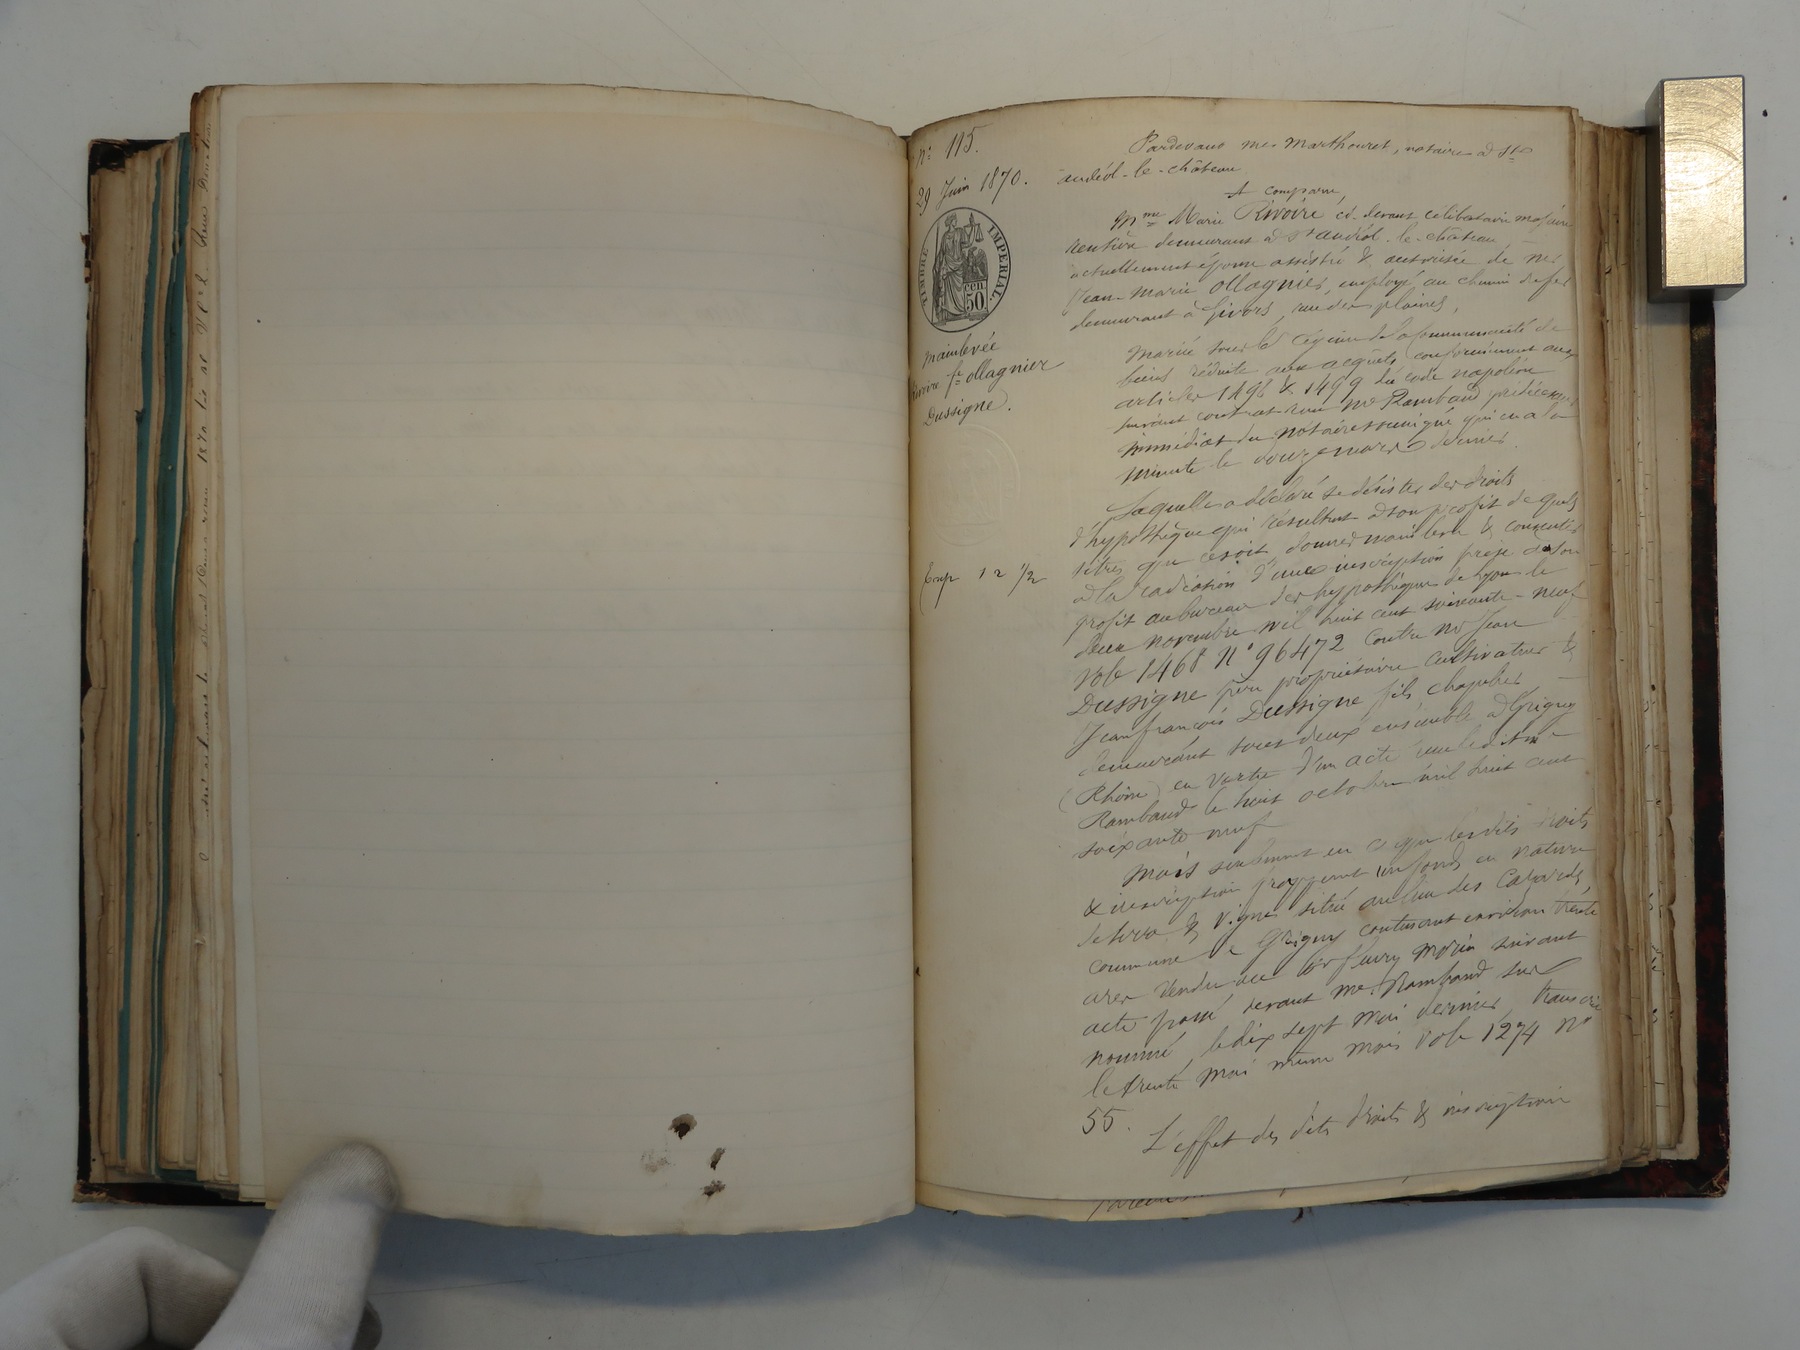 n: 115.
29 Juin 1870.
TIMBRE IMPERIAL.
CEN.
50.
mainlevée
Rivoire fe ollagnier
Dussigne.
Exp 12 1/2
Pardevant me Marthouret, notaire à St
andéol-le-château
A comparu,
Mme Marie Rivoire, ci-devant célibataire majeure
rentière demeurant à St andéol-le-château,
actuellement épouse assistée & autorisée de Mr
Jean-Marie ollagnier, employé au chemin de fer
demeurant à Givors, rue des plaines,
Mariée sous le régime de la communauté de
biens réduite aux acquêts conformément aux
articles 1498 & 1499 du code napoléon
suivant contrat reçu Me Rambaud prédécesseur
immédiat du notaire soussigné qui en a la
minute le douze mars dernier.
Laquelle a déclaré se désister des droits
d'hypothèque qui résultent à son profit de quels
titres que ce soit, donner mainlevée & consentir
à la radiation d'une inscription prise à son
profit au bureau des hypothèques de Lyon le
deux novembre mil huit cent soixante-neuf
vole 1468 n° 96472 contre Mr Jean
Dussigne père propriétaire cultivateur &
Jean françois Dussigne fils chapelier
demeurant tous deux ensemble à Grigny
(Rhône) en vertu d'un acte reçu ledit Me
Rambaud le huit octobre mil huit cent
soixante neuf
Mais seulement en ce que lesdits droits
& inscription frappent un fonds en nature
de terre & vigne situé au lieu des
commune de Grigny contenant environ trente
ares vendu au Sr fleury Morin suivant
acte passé devant me. Rambaud sus
nommé, le dix sept mai dernier, transcrit
le trente mai même mois vole 1274 no
55.
L'effet des dits droits & inscription